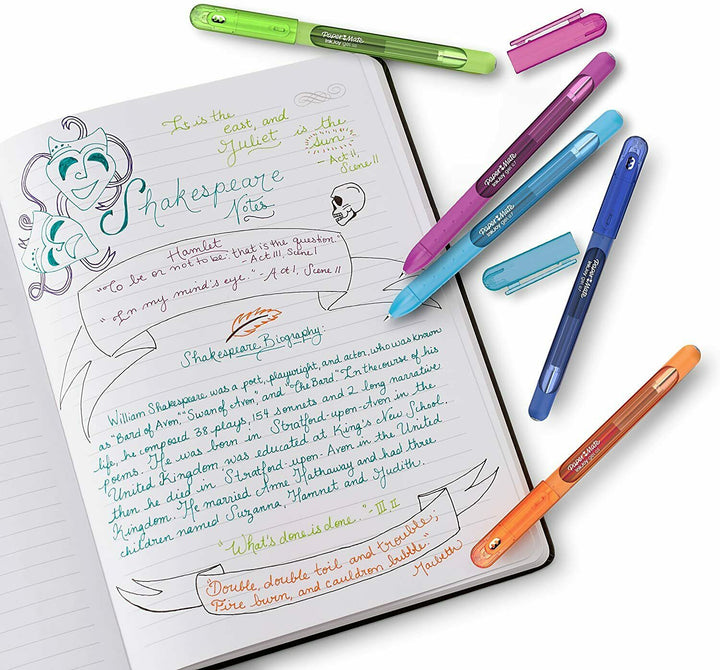 It is the
east, and
Juliet is the
sun."
- Act II,
Scene II
Shakespeare
Notes
Hamlet
"To be or not to be: that is the question."
- Act III, Scene I
"In my mind's eye." - Act I, Scene II
Shakespeare Biography:
William Shakespeare was a poet, playwright, and actor, who was known
as "Bard of Avon," "Swan of Avon," and "The Bard." In the course of his
life, he composed 38 plays, 154 sonnets and 2 long narrative
poems. He was born in Stratford-upon-Avon in the
United Kingdom, was educated at King's New School,
then he died in Stratford-upon-Avon in the United
Kingdom. He married Anne Hathaway and had three
children named Suzanna, Hamnet and Judith.
"What's done is done." - III II
"Double, double toil and trouble;
Fire burn, and cauldron bubble."
Macbeth
Paper Mate
InkJoy gel 0.7
Paper Mate
InkJoy gel 0.7
Paper Mate
InkJoy gel 0.7
Paper Mate
InkJoy gel 0.7
Paper Mate
InkJoy gel 0.7